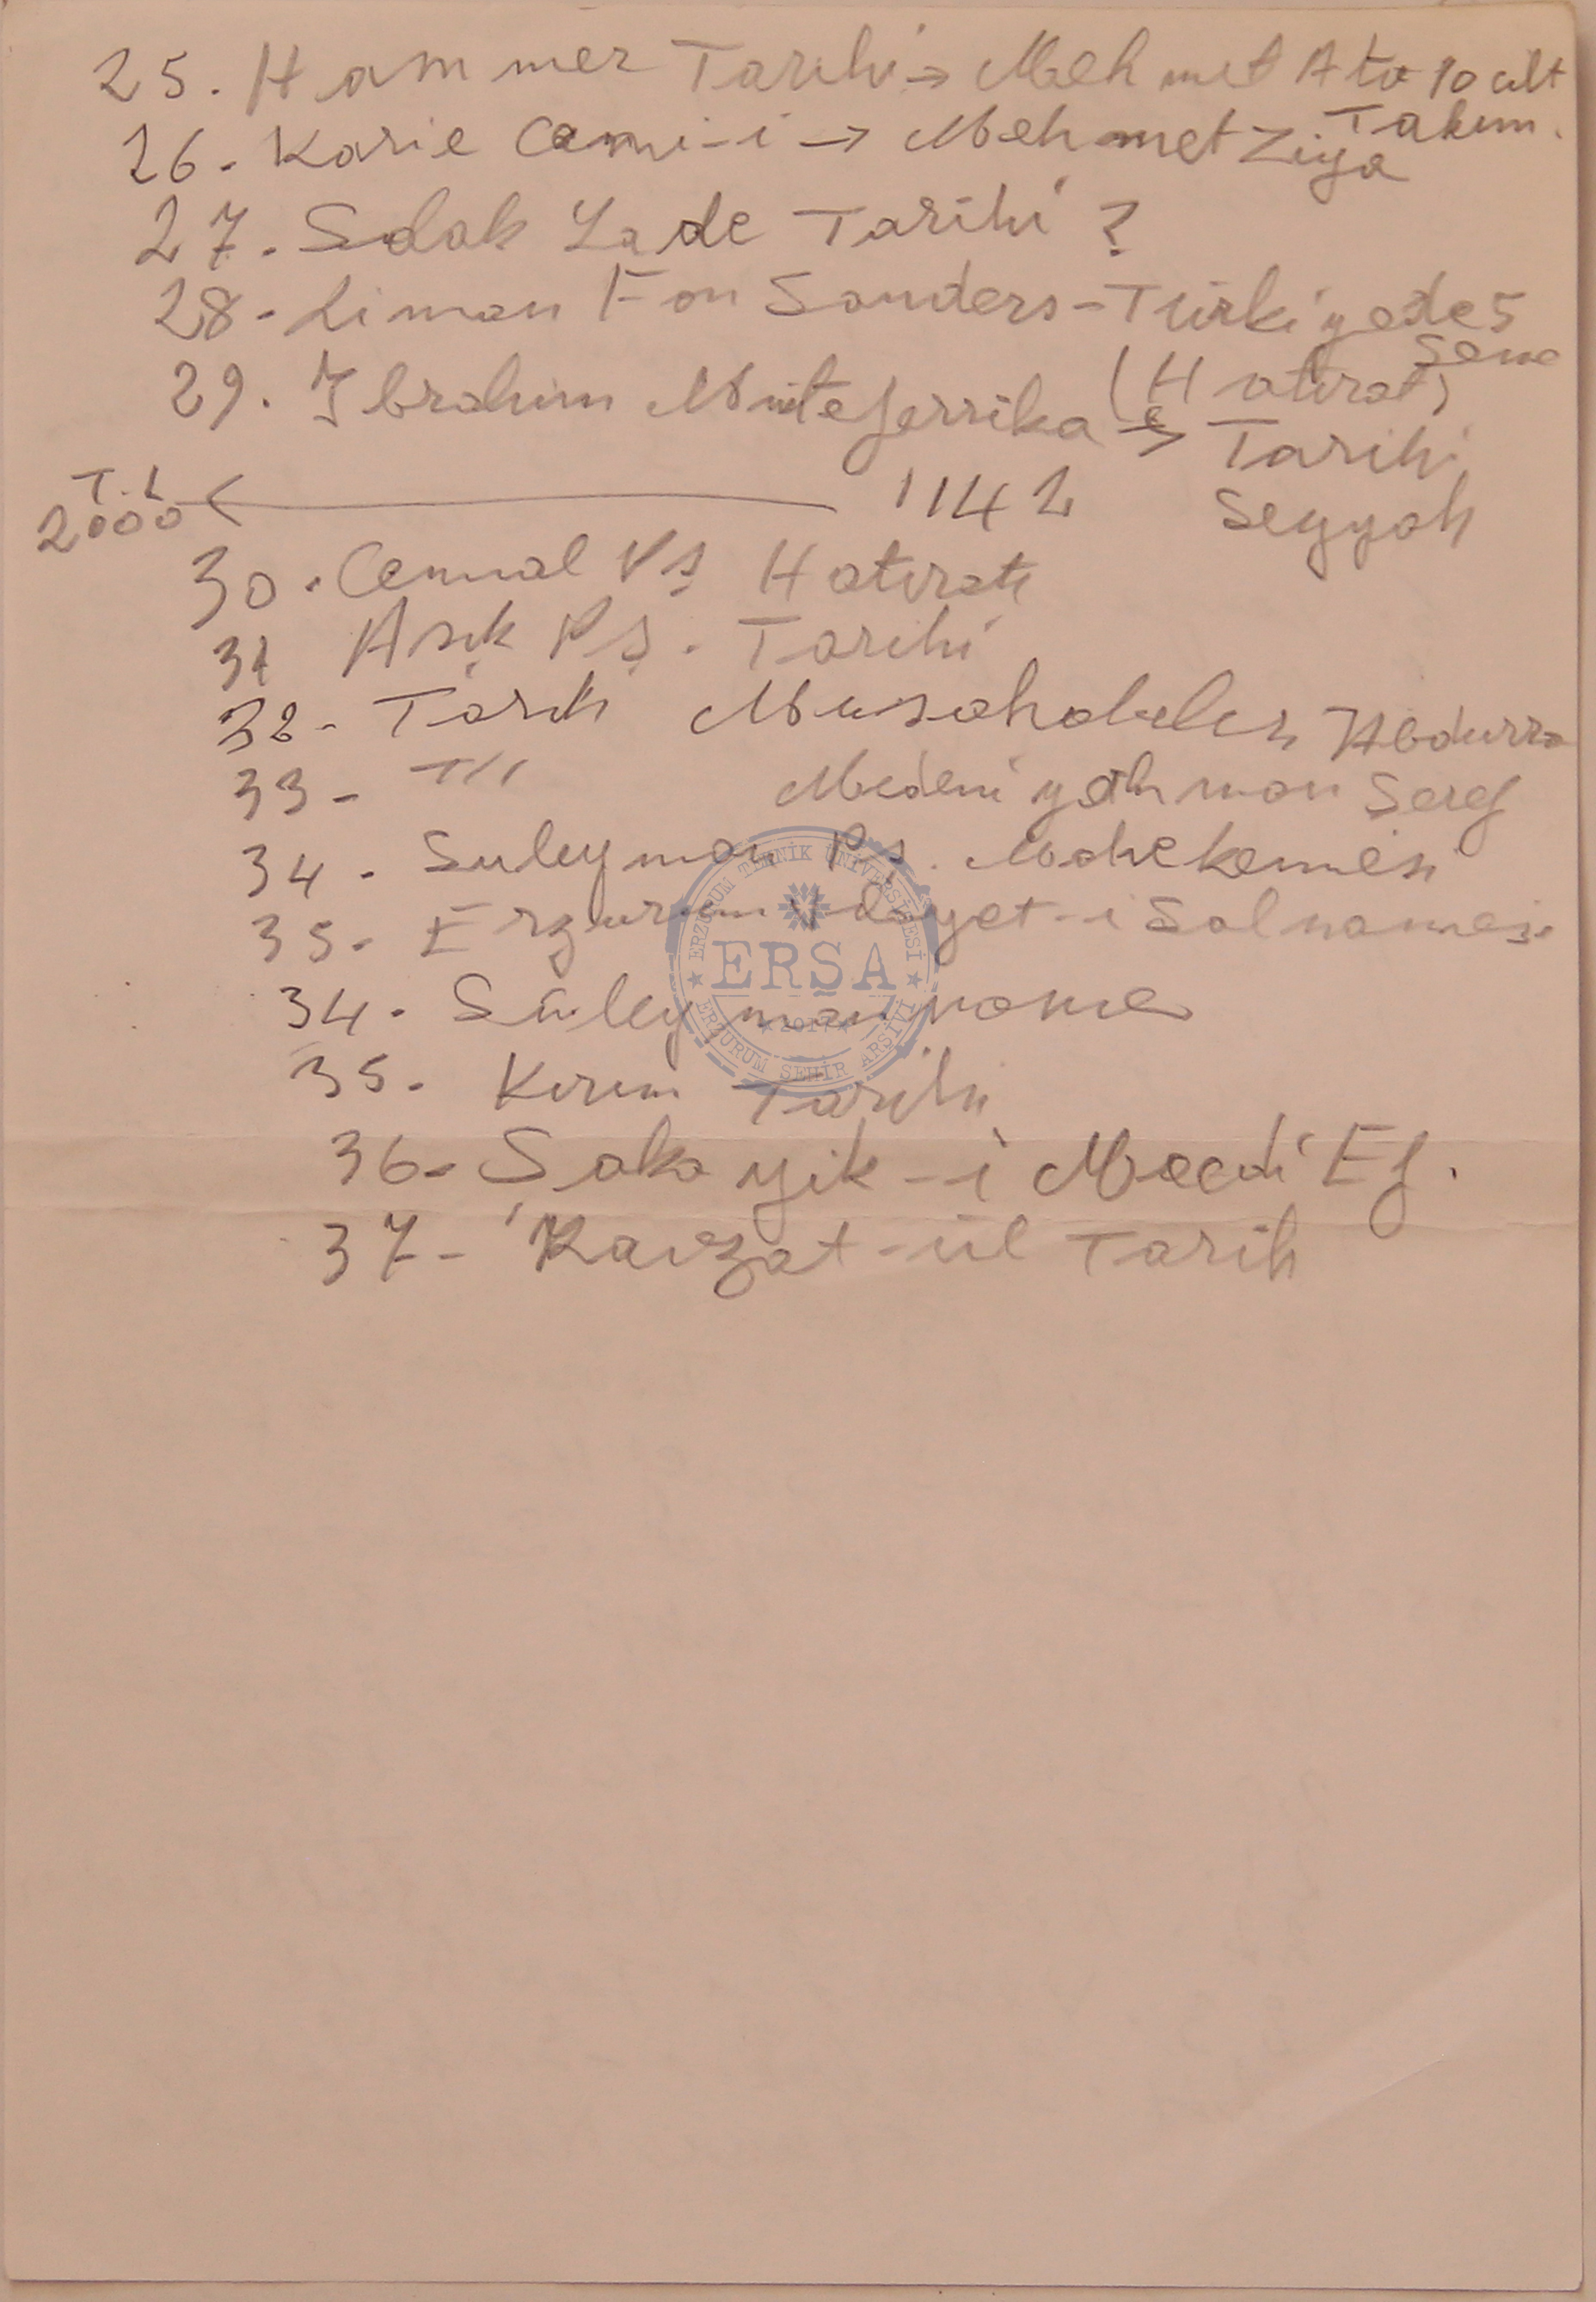 25. Hammer Tarihi → Mehmet Ata 10 cilt
Takım.
26. Karie Cami-i → Mehmet Ziya
27. Solak Zade Tarihi ?
28- Liman Fon Sanders - Türkiyede 5
sene
(Hatırat)
29. İbrahim Müteferrika → Tarihi
Seyyah
T.L
2000 ← 1142
30. Cemal Pş Hatıratı
31 Aşık Pş. Tarihi
32- Tarih Musahabeleri Abdurra
hman Şeref
33- T// Medeniyet
34. Suleyman Pş. Mahekemesi
35- Erzurum Vilayet-i Salnamesi
34. Süleymanname
35. Kırım Tarihi
36- Şakayik-i Mecdi Ef.
37- Ravzat-ül Tarih
ERZURUM TEKNİK ÜNİVERSİTESİ
ERŞA
2017
ERZURUM ŞEHİR ARŞİVİ